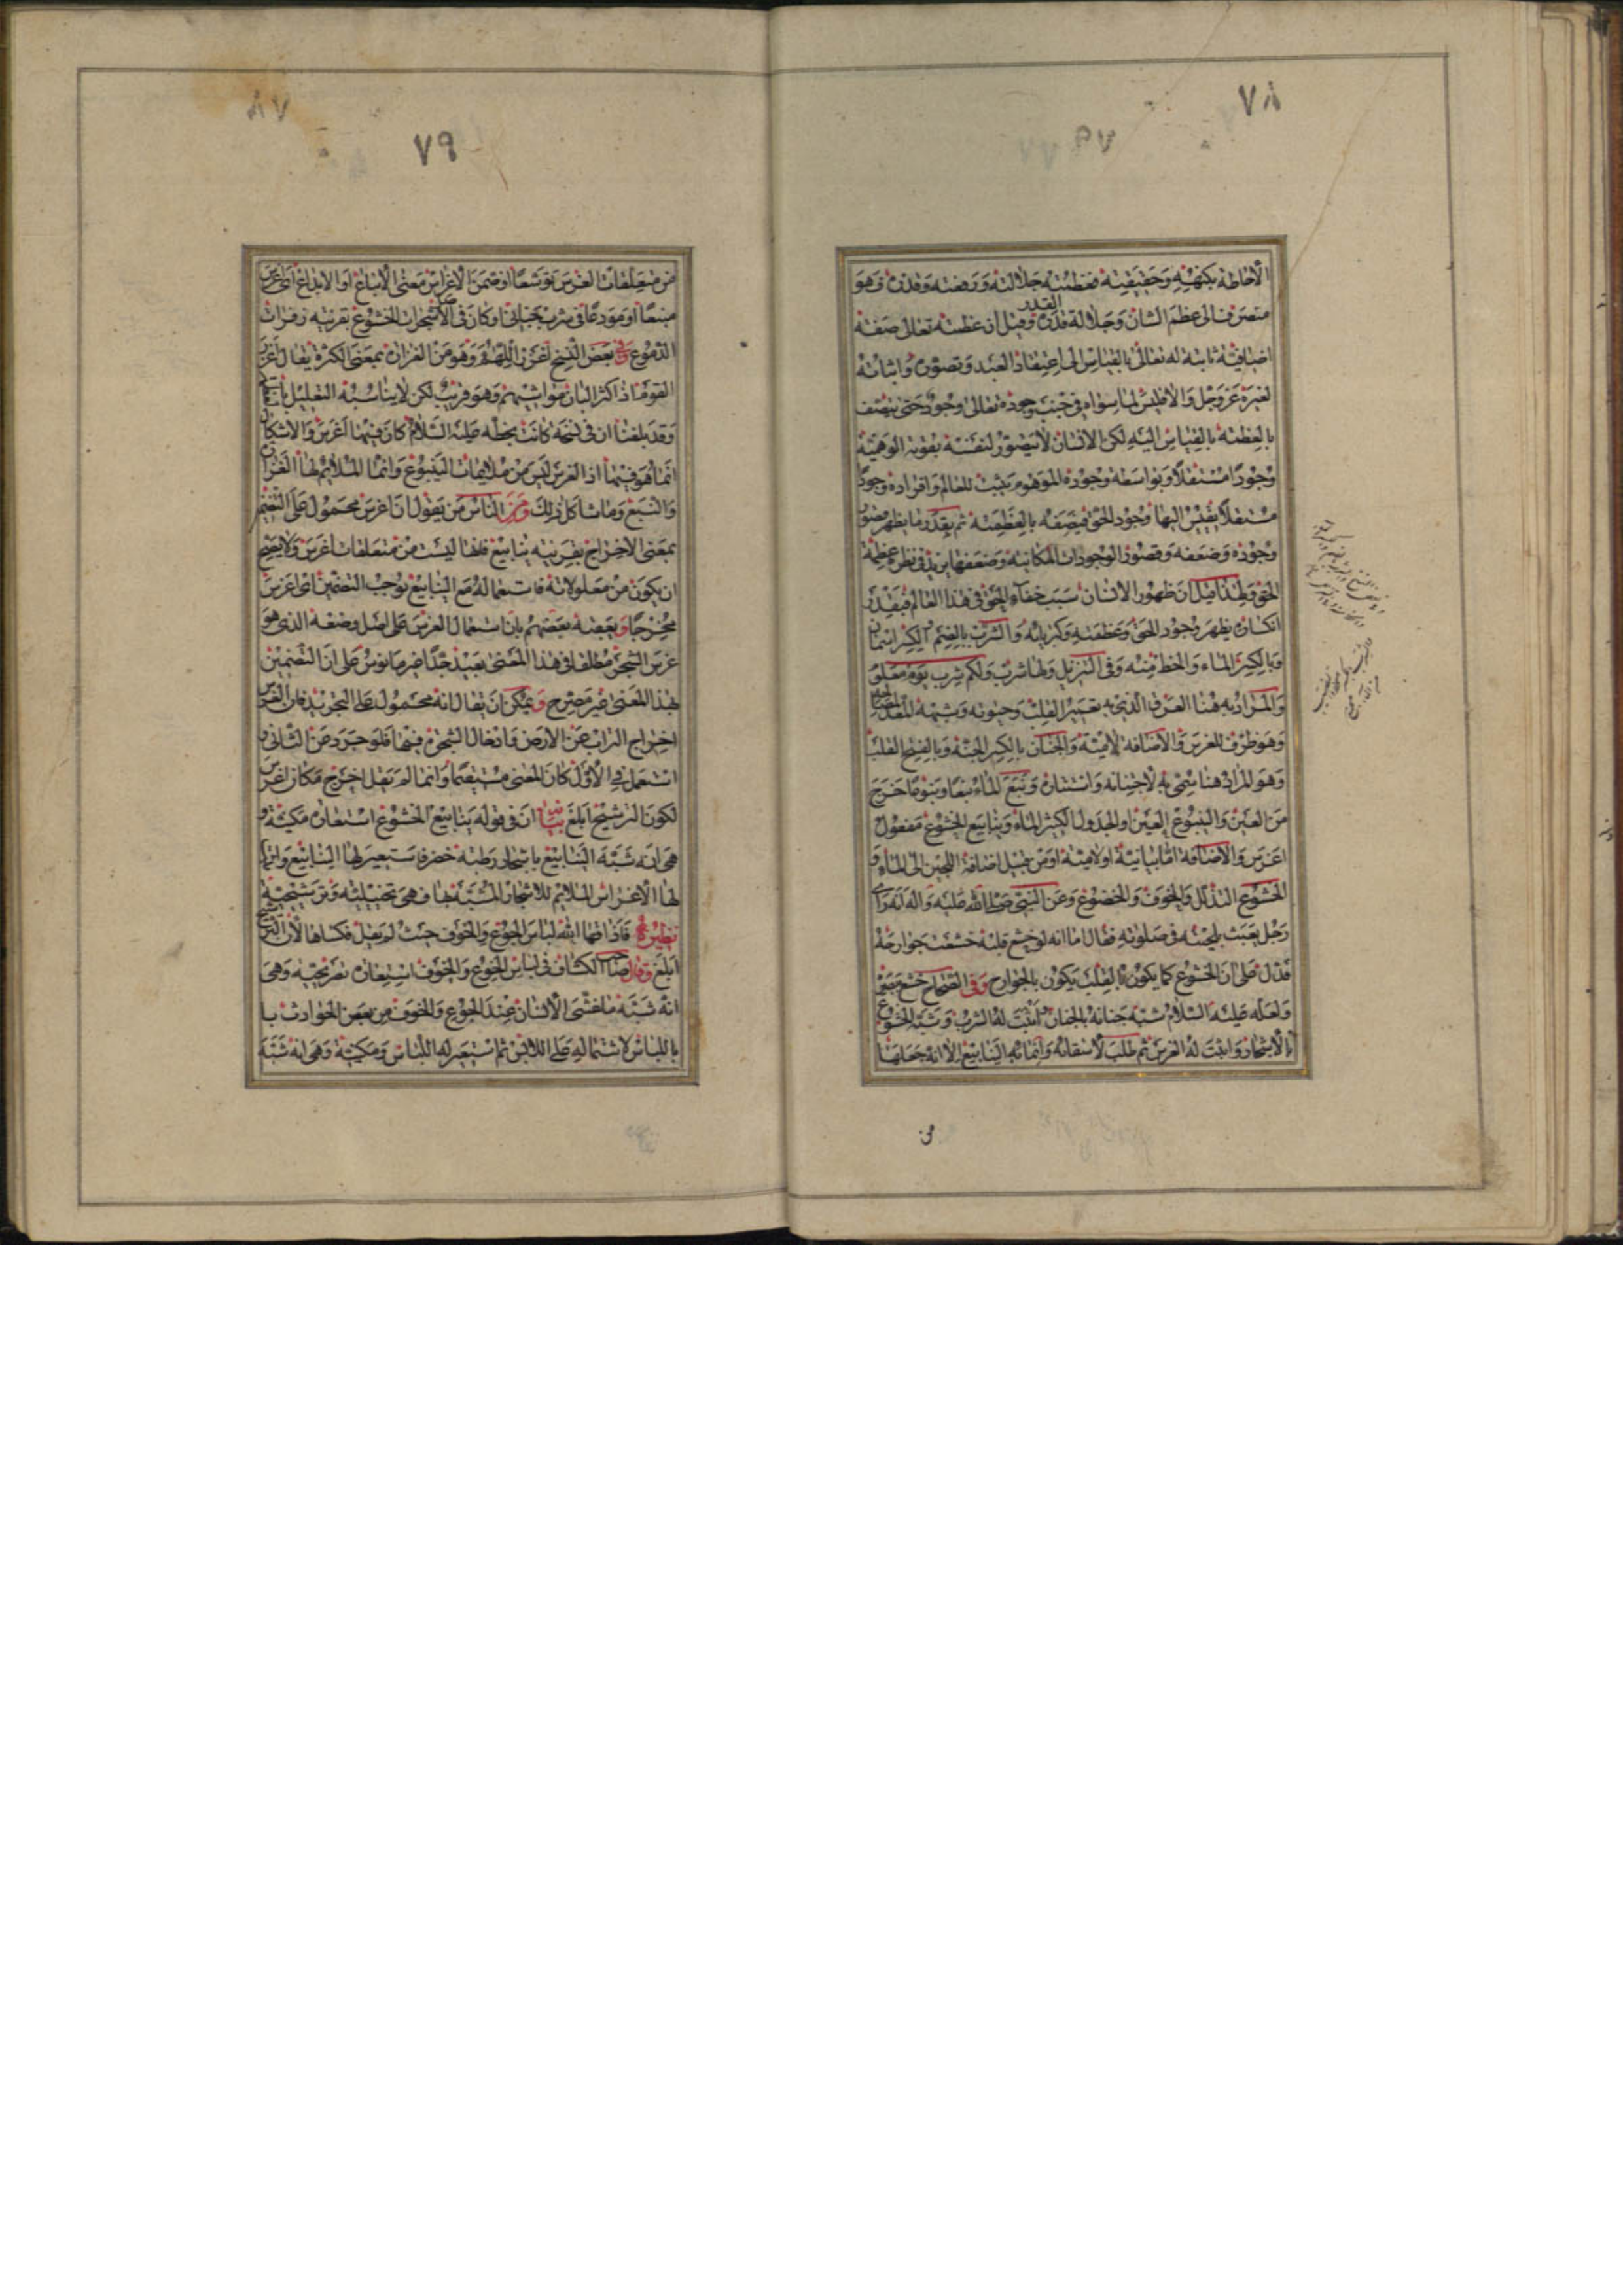 ٧٨
الاحاطة بكنهه وحقيقته فعظمته جلالته ورفعته وقدره وهو
منصرف الى عظم الشان وجلالة القدر وقيل ان عظمته تعالى صفة
اضافية ثابتة له تعالى بالقياس الى اعتقاد العبد وتصوره واثباته
لغيره عز وجل والا فليس لما سواه في جنب وجوده تعالى وجود حتى يتصف
بالعظمة بالقياس اليه لكن الانسان لا يتصور لنفسه بقوته الوهمية
وجودا مستقلا وبواسطة وجوده الموهوم يثبت للعالم وافراده وجودا
مستقلا يقيس اليها وجود الحق فيصفه بالعظمة ثم بقدر ما يظهر قصور
وجوده وضعفه وقصور الوجودات المكانية وضعفها يزيد في نظره عظمة
الحق ولهذا قيل ان ظهور الانسان سبب خفاء الحق في هذا العالم فبقدر
انكساره يظهر وجود الحق وعظمته وكبريائه والشرب بالضم
وبالكسر الماء والحظ منه وفي التنزيل ولها شرب ولكم شرب يوم معلوم
والمراد به هنا العرق الذي به تعيير القلب وحيوته
وهو ظرف للغرس والاضافة لامية والجنان بالكسر الجنة وبالفتح القلب
وهو المراد هنا سمي به لاجتنانه واستتاره ونبع الماء نبعا ونبوعا خرج
من العين والينبوع العين او الجدول الكثير الماء وينابيع الخشوع مفعول
اغرس والاضافة اما بيانية او لامية او من قبيل اضافة اللجين الى الماء و
الخشوع التذلل والخوف والخضوع وعن النبي صلى الله عليه واله انه راى
رجل يعبث بلحيته في صلوته فقال اما انه لو خشع قلبه خشعت جوارحه
فدل على ان الخشوع كما يكون بالقلب يكون بالجوارح وفي الصحاح خشع ببصره
ولعله عليه السلام شبه جنانه بالجنان اثبت له الشرب وشبه الخشوع
بالاشجار واثبت له الغرس ثم طلب لاسقائه وانمائه الينابيع الا انه جعلها
من
٧٩
من متعلقات الغرس توسعا او ضمن الاغراس معنى الانباع او الابداع اى اغرس
منبعا او مودعا في شرب جناني وكان في الاشجار الخشوع بقرينة زفرات
الدموع وفي بعض النسخ اغزر اللهم وهو من الغزارة بمعنى الكثرة يقال اغزر
القوم اذا كثر البان مواشيهم وهو قريب لكن لا يناسبه التعليل
وقد بلغنا ان في نسخة كانت بخطه عليه السلام كان فيها اغرس والاشكال
انما هو فيها اذ الغرس ليس من ملايمات الينبوع وانما الملايم لها الغزارة
والنبع وما شاكل ذلك ومن الناس من يقول ان اغرس محمول على التضمين
بمعنى الاخراج بقرينة ينابيع فانها ليست من متعلقات اغرس ولا يصح
ان يكون من معمولاته فاستعماله مع الينابيع يوجب التضمين اى اغرس
مخرجا وبعضه بعضهم بان استعمال الغرس على اصل وضعه الذي هو
غرس الشجر مطلقا في هذا المعنى بعيد جدا غير مانوس على ان التضمين
بهذا المعنى غير مصرح ويمكن ان يقال انه محمول على التجريد فان الغرس
اخراج التراب عن الارض وادخال الشجرة فيها فلو جرد عن الثاني و
استعمل في الاول كان المعنى مستقيما وانما لم يقل اخرج مكان اغرس
لكون الترشيح ابلغ بيانه ان في قوله ينابيع الخشوع استعارة مكنية و
هي انه شبه الينابيع باشجار رطبة خضر فاستعير لها الينابيع واثبت
لها الاغراس الملايم للاشجار المشبه بها فهي تخييلية وترشيحية
نظيره فاذاقها الله لباس الجوع والخوف حيث لم يقل فكساها لان الترشيح
ابلغ وقال صاحب الكشاف في لباس الجوع والخوف استعارة تصريحية وهي
انه شبه ما غشى الانسان عند الجوع والخوف من بعض الحوادث با
باللباس لاشتماله على اللابس ثم استعير له اللباس ومكنية وهي انه شبه